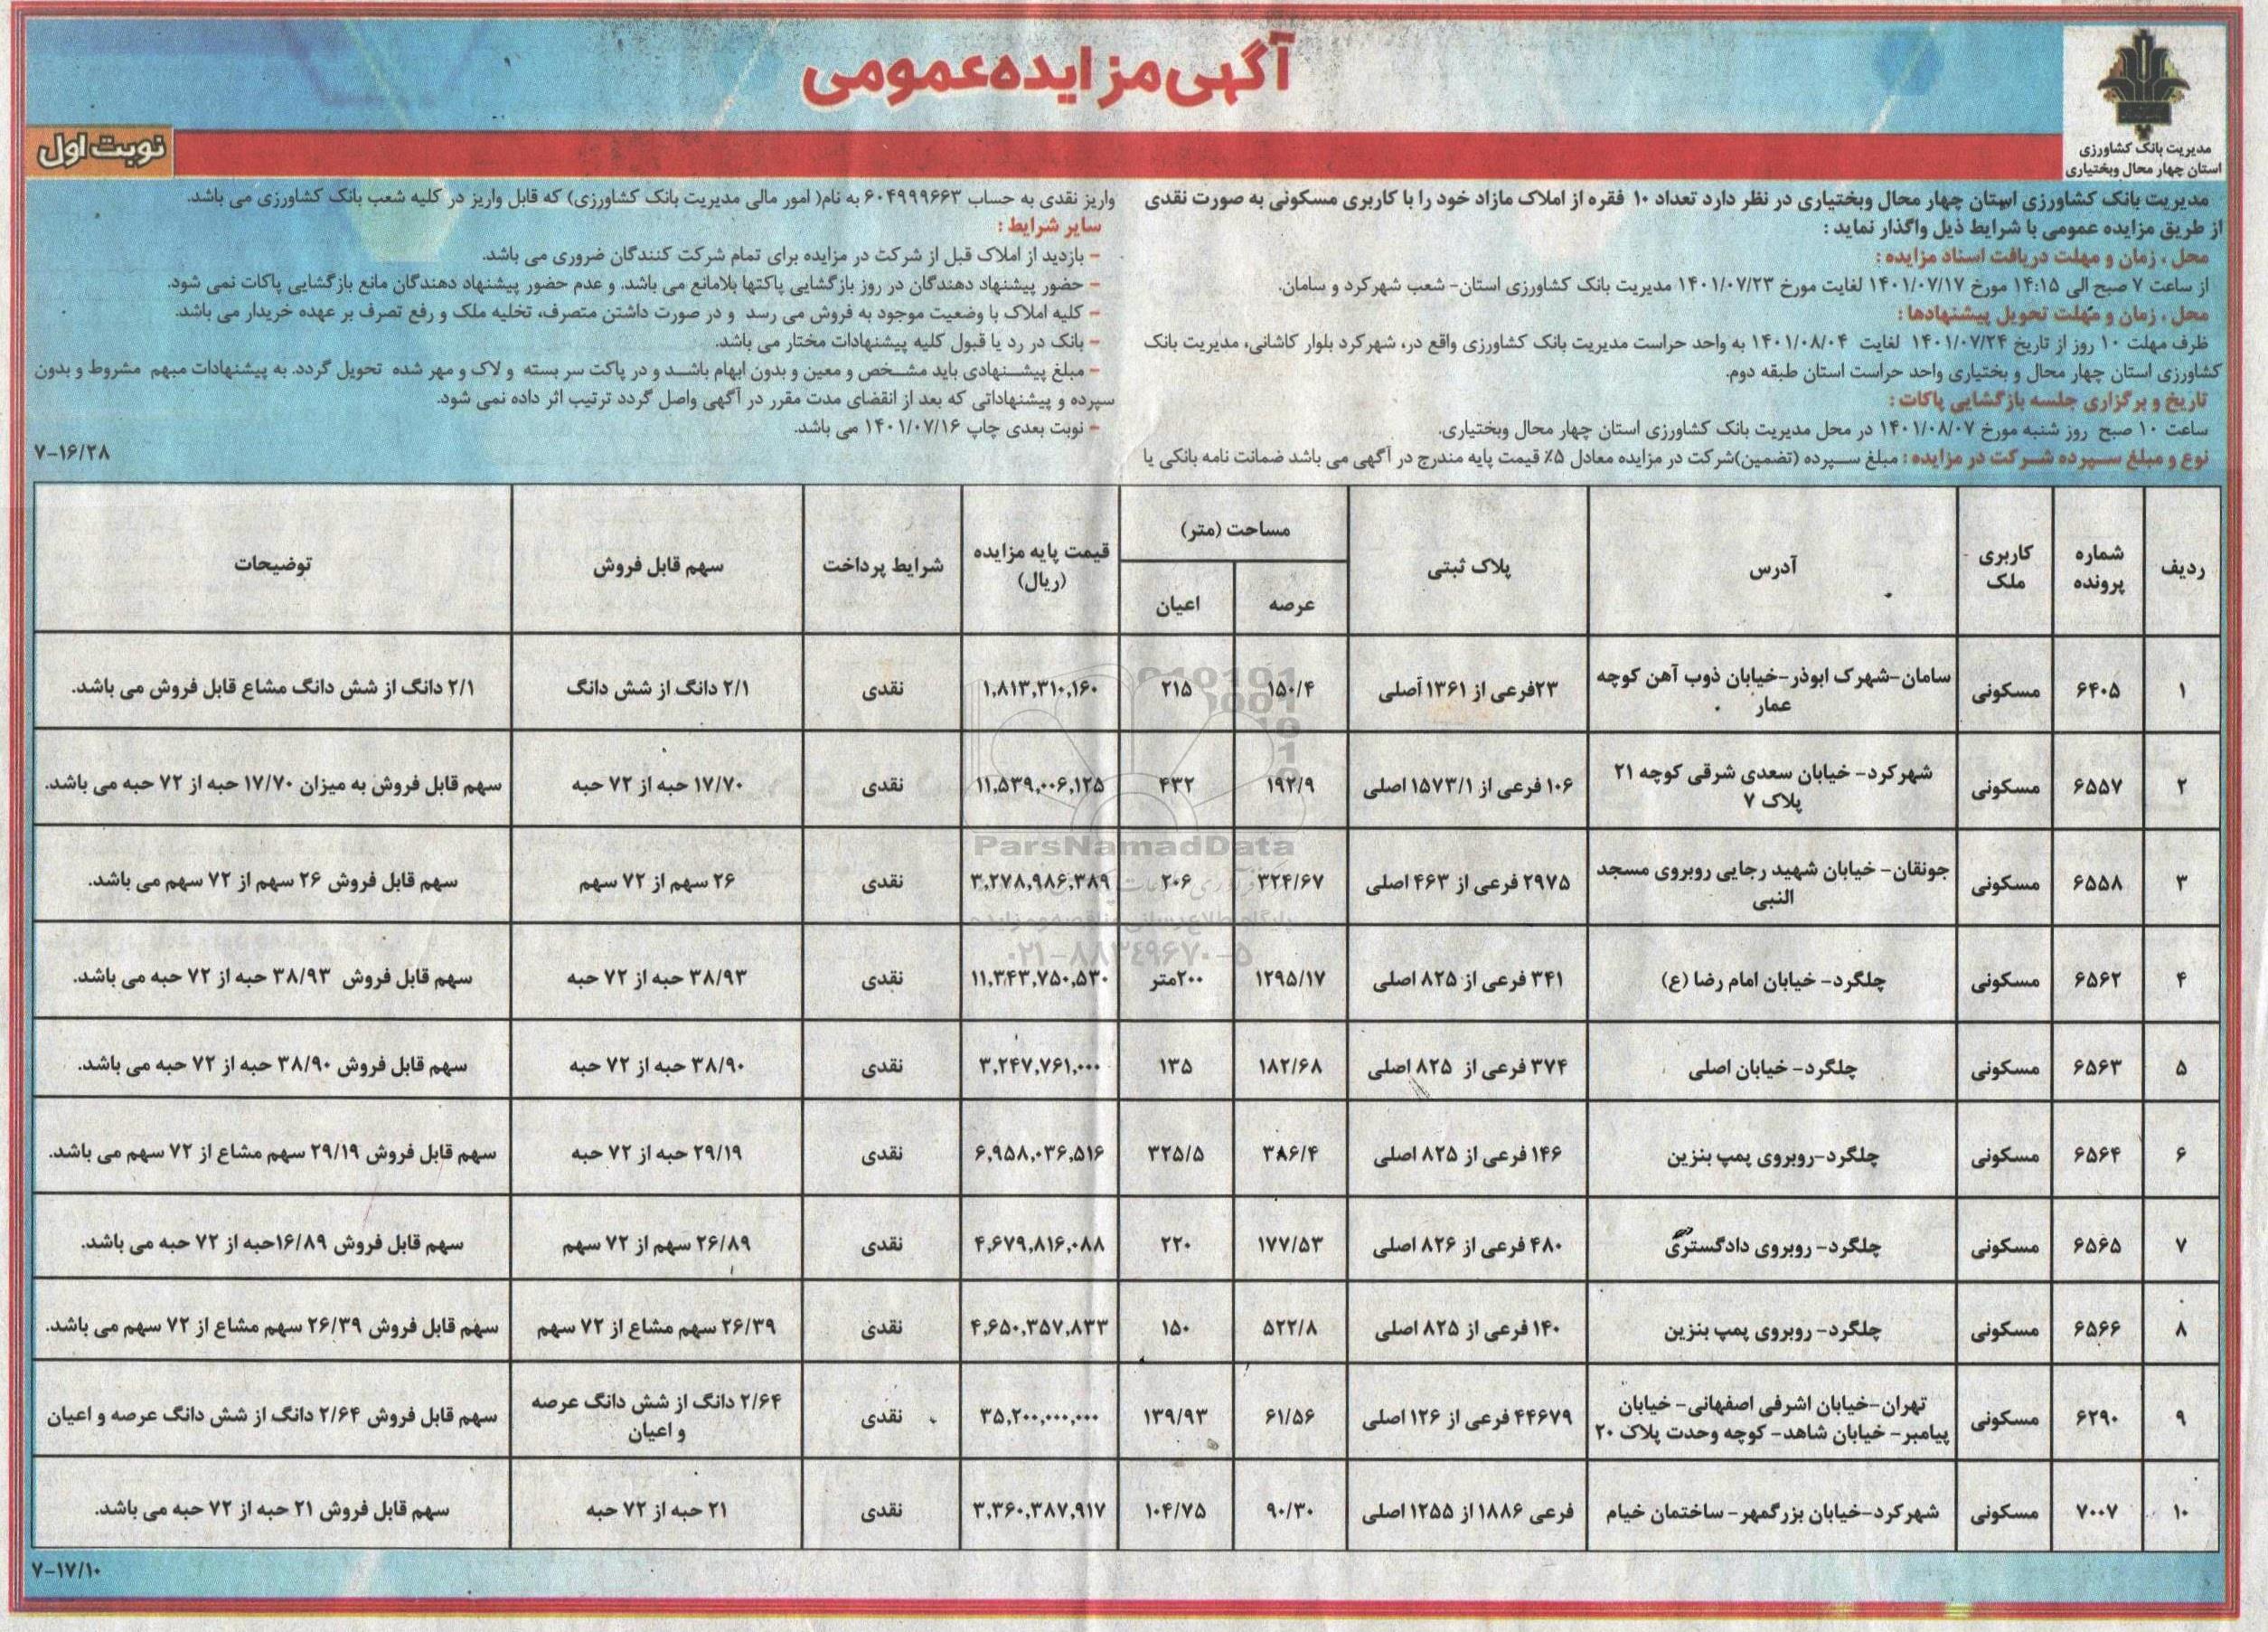 آگهی مزایده عمومی
مدیریت بانک کشاورزی
استان چهار محال وبختیاری
نوبت اول
مدیریت بانک کشاورزی استان چهار محال وبختیاری در نظر دارد تعداد ۱۰ فقره از املاک مازاد خود را با کاربری مسکونی به صورت نقدی
از طریق مزایده عمومی با شرایط ذیل واگذار نماید :
محل ، زمان و مهلت دریافت اسناد مزایده :
از ساعت ۷ صبح الی ۱۴:۱۵ مورخ ۱۴۰۱/۰۷/۱۷ لغایت مورخ ۱۴۰۱/۰۷/۲۳ مدیریت بانک کشاورزی استان- شعب شهرکرد و سامان.
محل ، زمان و مهلت تحویل پیشنهادها :
ظرف مهلت ۱۰ روز از تاریخ ۱۴۰۱/۰۷/۲۴ لغایت ۱۴۰۱/۰۸/۰۴ به واحد حراست مدیریت بانک کشاورزی واقع در، شهرکرد بلوار کاشانی، مدیریت بانک
کشاورزی استان چهار محال و بختیاری واحد حراست استان طبقه دوم.
تاریخ و برگزاری جلسه بازگشایی پاکات :
ساعت ۱۰ صبح روز شنبه مورخ ۱۴۰۱/۰۸/۰۷ در محل مدیریت بانک کشاورزی استان چهار محال وبختیاری.
نوع و مبلغ سپرده شرکت در مزایده : مبلغ سپرده (تضمین)شرکت در مزایده معادل ۵٪ قیمت پایه مندرج در آگهی می باشد ضمانت نامه بانکی یا
واریز نقدی به حساب ۶۰۴۹۹۹۶۶۳ به نام( امور مالی مدیریت بانک کشاورزی) که قابل واریز در کلیه شعب بانک کشاورزی می باشد.
سایر شرایط :
- بازدید از املاک قبل از شرکت در مزایده برای تمام شرکت کنندگان ضروری می باشد.
- حضور پیشنهاد دهندگان در روز بازگشایی پاکتها بلامانع می باشد. و عدم حضور پیشنهاد دهندگان مانع بازگشایی پاکات نمی شود.
- کلیه املاک با وضعیت موجود به فروش می رسد و در صورت داشتن متصرف، تخلیه ملک و رفع تصرف بر عهده خریدار می باشد.
- بانک در رد یا قبول کلیه پیشنهادات مختار می باشد.
- مبلغ پیشنهادی باید مشخص و معین و بدون ابهام باشد و در پاکت سر بسته و لاک و مهر شده تحویل گردد. به پیشنهادات مبهم مشروط و بدون
سپرده و پیشنهاداتی که بعد از انقضای مدت مقرر در آگهی واصل گردد ترتیب اثر داده نمی شود.
- نوبت بعدی چاپ ۱۴۰۱/۰۷/۱۶ می باشد.
۷-۱۶/۲۸
ردیف | شماره پرونده | کاربری ملک | آدرس | پلاک ثبتی | مساحت (متر) عرصه | اعیان | قیمت پایه مزایده (ریال) | شرایط پرداخت | سهم قابل فروش | توضیحات
۱ | ۶۴۰۵ | مسکونی | سامان-شهرک ابوذر-خیابان ذوب آهن کوچه عمار | ۲۳فرعی از ۱۳۶۱ اصلی | ۱۵۰/۴ | ۲۱۵ | ۱,۸۱۳,۳۱۰,۱۶۰ | نقدی | ۲/۱ دانگ از شش دانگ | ۲/۱ دانگ از شش دانگ مشاع قابل فروش می باشد.
۲ | ۶۵۵۷ | مسکونی | شهرکرد- خیابان سعدی شرقی کوچه ۲۱ پلاک ۷ | ۱۰۶ فرعی از ۱۵۷۳/۱ اصلی | ۱۹۲/۹ | ۴۳۲ | ۱۱,۵۳۹,۰۰۶,۱۲۵ | نقدی | ۱۷/۷۰ حبه از ۷۲ حبه | سهم قابل فروش به میزان ۱۷/۷۰ حبه از ۷۲ حبه می باشد.
۳ | ۶۵۵۸ | مسکونی | جونقان- خیابان شهید رجایی روبروی مسجد النبی | ۲۹۷۵ فرعی از ۴۶۳ اصلی | ۳۲۴/۶۷ | ۲۰۶ | ۳,۲۷۸,۹۸۶,۳۸۹ | نقدی | ۲۶ سهم از ۷۲ سهم | سهم قابل فروش ۲۶ سهم از ۷۲ سهم می باشد.
۴ | ۶۵۶۲ | مسکونی | چلگرد- خیابان امام رضا (ع) | ۳۴۱ فرعی از ۸۲۵ اصلی | ۱۲۹۵/۱۷ | ۲۰۰متر | ۱۱,۳۴۳,۷۵۰,۵۳۰ | نقدی | ۳۸/۹۳ حبه از ۷۲ حبه | سهم قابل فروش ۳۸/۹۳ حبه از ۷۲ حبه می باشد.
۵ | ۶۵۶۳ | مسکونی | چلگرد- خیابان اصلی | ۳۷۴ فرعی از ۸۲۵ اصلی | ۱۸۲/۶۸ | ۱۳۵ | ۳,۲۴۷,۷۶۱,۰۰۰ | نقدی | ۳۸/۹۰ حبه از ۷۲ حبه | سهم قابل فروش ۳۸/۹۰ حبه از ۷۲ حبه می باشد.
۶ | ۶۵۶۴ | مسکونی | چلگرد-روبروی پمپ بنزین | ۱۴۶ فرعی از ۸۲۵ اصلی | ۳۸۶/۴ | ۳۲۵/۵ | ۶,۹۵۸,۰۳۶,۵۱۶ | نقدی | ۲۹/۱۹ حبه از ۷۲ حبه | سهم قابل فروش ۲۹/۱۹ سهم مشاع از ۷۲ سهم می باشد.
۷ | ۶۵۶۵ | مسکونی | چلگرد- روبروی دادگستری | ۴۸۰ فرعی از ۸۲۶ اصلی | ۱۷۷/۵۳ | ۲۲۰ | ۴,۶۷۹,۸۱۶,۰۸۸ | نقدی | ۲۶/۸۹ سهم از ۷۲ سهم | سهم قابل فروش ۱۶/۸۹حبه از ۷۲ حبه می باشد.
۸ | ۶۵۶۶ | مسکونی | چلگرد- روبروی پمپ بنزین | ۱۴۰ فرعی از ۸۲۵ اصلی | ۵۲۲/۸ | ۱۵۰ | ۴,۶۵۰,۳۵۷,۸۳۳ | نقدی | ۲۶/۳۹ سهم مشاع از ۷۲ سهم | سهم قابل فروش ۲۶/۳۹ سهم مشاع از ۷۲ سهم می باشد.
۹ | ۶۲۹۰ | مسکونی | تهران-خیابان اشرفی اصفهانی- خیابان پیامبر- خیابان شاهد- کوچه وحدت پلاک ۲۰ | ۴۴۶۷۹ فرعی از ۱۲۶ اصلی | ۶۱/۵۶ | ۱۳۹/۹۳ | ۳۵,۲۰۰,۰۰۰,۰۰۰ | نقدی | ۲/۶۴ دانگ از شش دانگ عرصه و اعیان | سهم قابل فروش ۲/۶۴ دانگ از شش دانگ عرصه و اعیان
۱۰ | ۷۰۰۷ | مسکونی | شهرکرد-خیابان بزرگمهر- ساختمان خیام | فرعی ۱۸۸۶ از ۱۲۵۵ اصلی | ۹۰/۳۰ | ۱۰۴/۷۵ | ۳,۳۶۰,۳۸۷,۹۱۷ | نقدی | ۲۱ حبه از ۷۲ حبه | سهم قابل فروش ۲۱ حبه از ۷۲ حبه می باشد.
ParsNamadData
پایگاه اطلاع رسانی مناقصه و مزایده
۰۲۱-۸۸۳۴۹۶۷۰-۵
۷-۱۷/۱۰